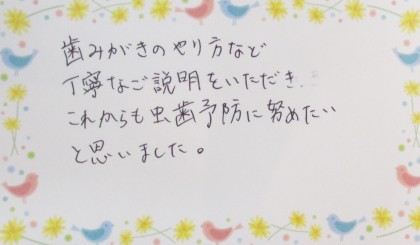 歯みがきのやり方など
丁寧なご説明をいただき…
これからも虫歯予防に努めたい
と思いました。